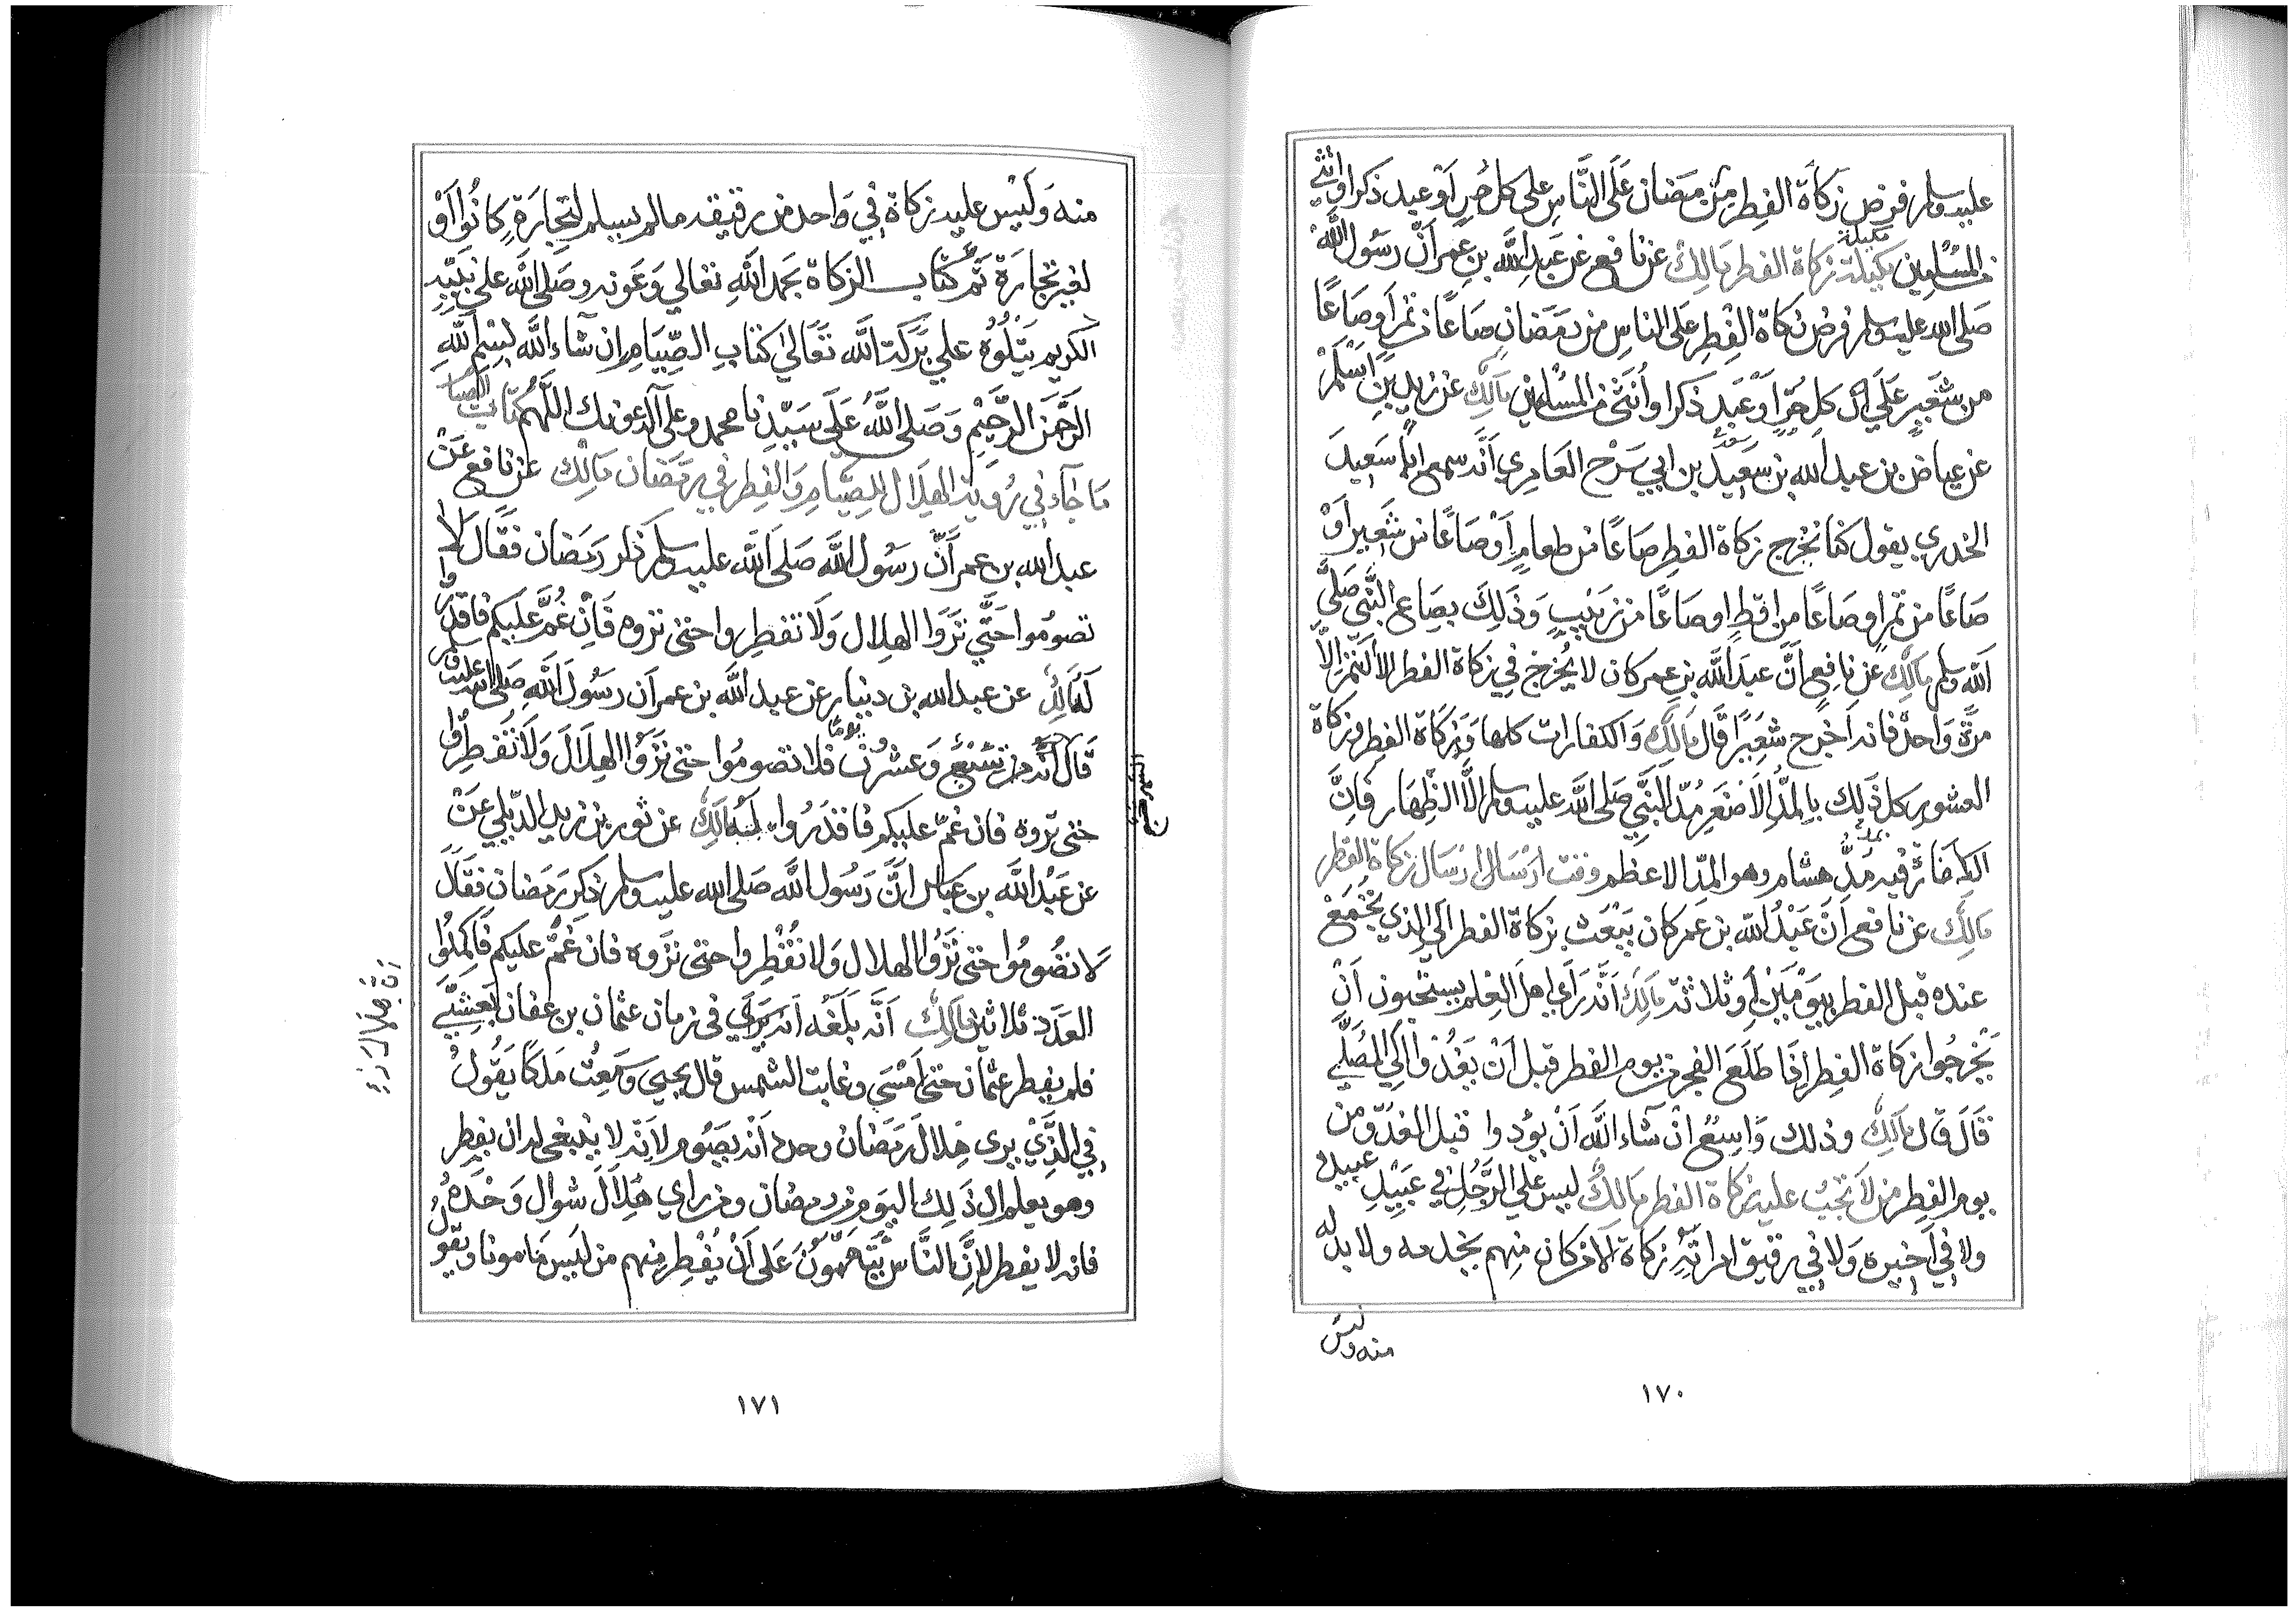 عليه وسلم فرض زكاة الفطر من رمضان على الناس على كل حر او عبد ذكر او انثى
من المسلمين مكيلة زكاة الفطر مالك عن نافع عن عبد الله بن عمر أن رسول الله
صلى الله عليه وسلم فرض زكاة الفطر على الناس من رمضان صاعا من تمر او صاعا
من شعير على كل حر او عبد ذكر او أنثى من المسلمين مالك عن زيد بن اسلم
عن عياض بن عبد الله بن سعيد بن ابي سرح العامري أنه سمع ابا سعيد
الخدري يقول كنا نخرج زكاة الفطر صاعا من طعام او صاعا من شعير او
صاعا من تمر او صاعا من اقط او صاعا من زبيب وذلك بصاع النبي صلى
الله وسلم مالك عن نافع أن عبد الله بن عمر كان لا يخرج في زكاة الفطر الا التمر الا
مرة واحدة فانه اخرج شعيرا قال مالك والكفارات كلها وزكاة الفطر وزكاة
العشور كل ذلك بالمد الاصغر مد النبي صلى الله عليه وسلم الا الظهار فان
الكفارة فيه بمد هشام وهو المد الاعظم وقت ارسال ارسال زكاة الفطر
مالك عن نافع أن عبد الله بن عمر كان يبعث بزكاة الفطر الى الذي تجمع
عنده قبل الفطر بيومين او ثلاثة مالك أنه رأى اهل العلم يستحبون أن
يخرجوا زكاة الفطر إذا طلع الفجر من يوم الفطر قبل أن يغدوا الى المصلى
قال قال مالك وذلك واسع ان شاء الله أن يؤدوا قبل الغدو من
يوم الفطر من لا تجب عليه زكاة الفطر مالك ليس على الرجل في عبيد عبيده
ولا في اجيره ولا في رقيق امراته زكاة الا من كان منهم يخدمه ولا بد له
منه وليس
١٧٠
منه وليس عليه زكاة في واحد من رقيقه ما لم يسلم لتجارة كانوا او
لغير تجارة تم كتاب الزكاة بحمد الله تعالى وعونه وصلى الله على نبيه
الكريم يتلوه على بركت الله تعالى كتاب الصيام ان شاء الله بسم الله
الرحمن الرحيم وصلى الله على سيدنا محمد وعلى آله عونك اللهم كتاب الصيام
ما جاء في رؤية الهلال للصيام والفطر في رمضان مالك عن نافع عن
عبد الله بن عمر أن رسول الله صلى الله عليه وسلم ذكر رمضان فقال لا
تصوموا حتى تروا الهلال ولا تفطروا حتى تروه فإن غم عليكم فاقدروا
له مالك عن عبد الله بن دينار عن عبد الله بن عمر أن رسول الله صلى الله عليه وسلم
قال الشهر تسع وعشرون يوما فلا تصوموا حتى تروا الهلال ولا تفطروا
حتى تروه فان غم عليكم فاقدروا له مالك عن ثور بن زيد الديلي عن
عن عبد الله بن عباس ان رسول الله صلى الله عليه وسلم ذكر رمضان فقال
لا تصوموا حتى تروا الهلال ولا تفطروا حتى تروه فان غم عليكم فاكملوا
العدة ثلاثين مالك أنه بلغه في زمان عثمان بن عفان بعشي
فلم يفطر عثمان حتى أمسى وغابت الشمس قال يحيى وسمعت مالكا يقول
في الذي يرى هلال رمضان وحده أنه يصوم لانه لا ينبغي له ان يفطر
وهو يعلم ان ذلك اليوم من رمضان ومن راى هلال شوال وحده
فانه لا يفطر لان الناس يتهمون على أن يفطر منهم من ليس مامونا ويقول
١٧١